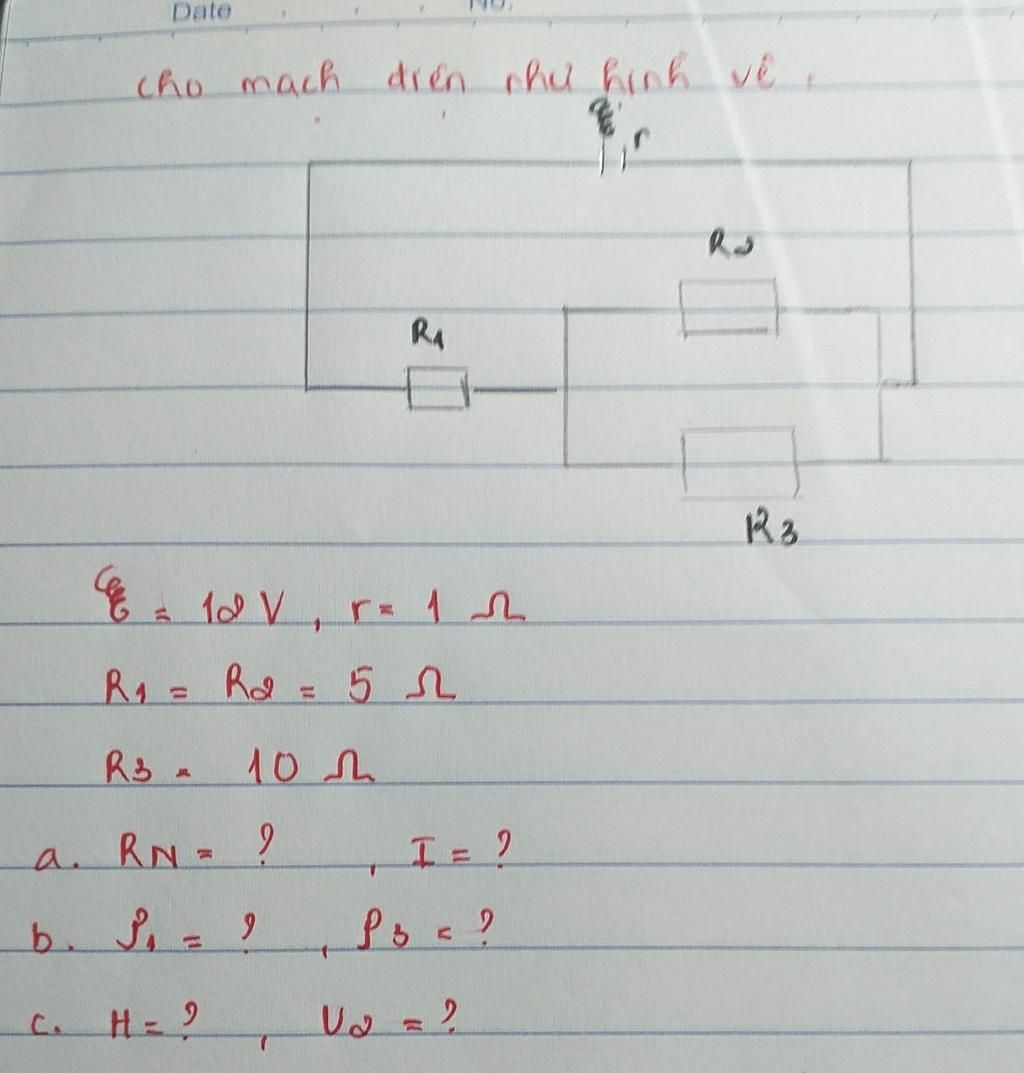 Date No.
cho mạch điện như hình vẽ.
ξ, r
R2
R1
R3
ξ = 12 V, r = 1 Ω
R1 = R2 = 5 Ω
R3 = 10 Ω
a. RN = ? , I = ?
b. P1 = ? , P3 = ?
c. H = ? , U2 = ?